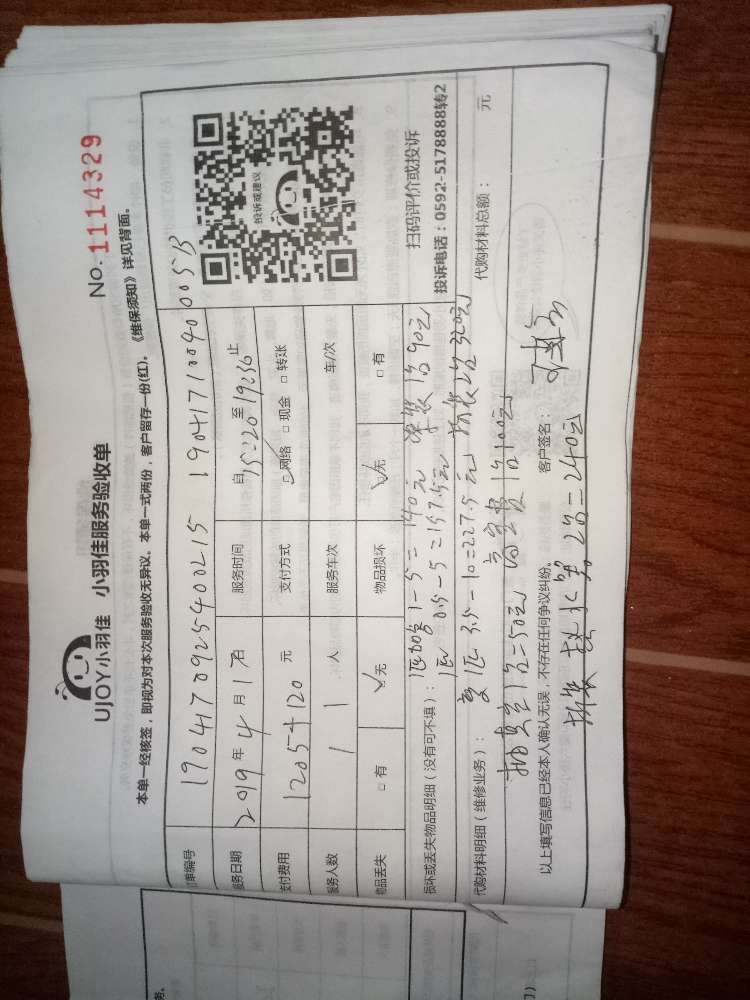 UJOY小羽佳 小羽佳服务验收单
No. 1114329
本单一经核签，即视为对本次服务验收无异议。本单一式两份，客户留存一份(红)。《维保须知》详见背面。
订单编号 1904170925400215 190417100400053
服务日期 2019年4月17日 服务时间 自15:20至19:36止
支付费用 1205+120 元 支付方式 网络 □现金 □转账
服务人数 1 人 服务车次 1 车/次
物品丢失 □有 无 物品损坏 无 □有
投诉或建议
扫码评价或投诉
投诉电话：0592-5178888转2
损坏或丢失物品明细（没有可不填）：
1-5=140元 1台90元
1匹 0.5-5=157.5元
代购材料明细（维修业务）：
1匹 3.5-10=227.5元 拆装2台320元
代购材料总额： 元
抽真空1台=50元 高空费1台100元
以上填写信息已经本人确认无误，不存在任何争议纠纷。
客户签名：
拆装热水器2台=240元